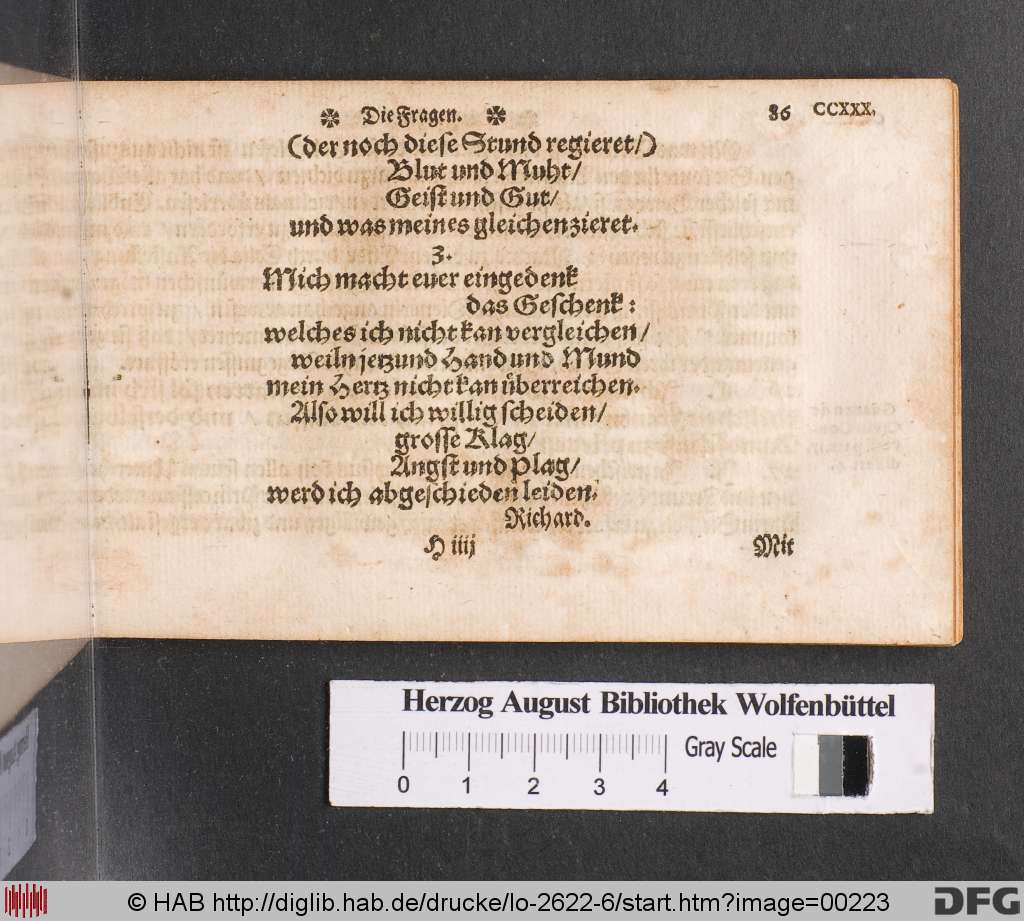 ✼ Die Fragen. ✼ 86 CCXXX.
(der noch diese Stund regieret/)
Blut und Muht/
Geist und Gut/
und was meines gleichen zieret.
3.
Mich macht euer eingedenk
das Geschenk:
welches ich nicht kan vergleichen/
weiln jetzund Hand und Mund
mein Hertz nicht kan überreichen.
Also will ich willig scheiden/
grosse Klag/
Angst und Plag/
werd ich abgeschieden leiden.
Richard.
H iiij Mit
Herzog August Bibliothek Wolfenbüttel
Gray Scale
0 1 2 3 4
© HAB http://diglib.hab.de/drucke/lo-2622-6/start.htm?image=00223
DFG